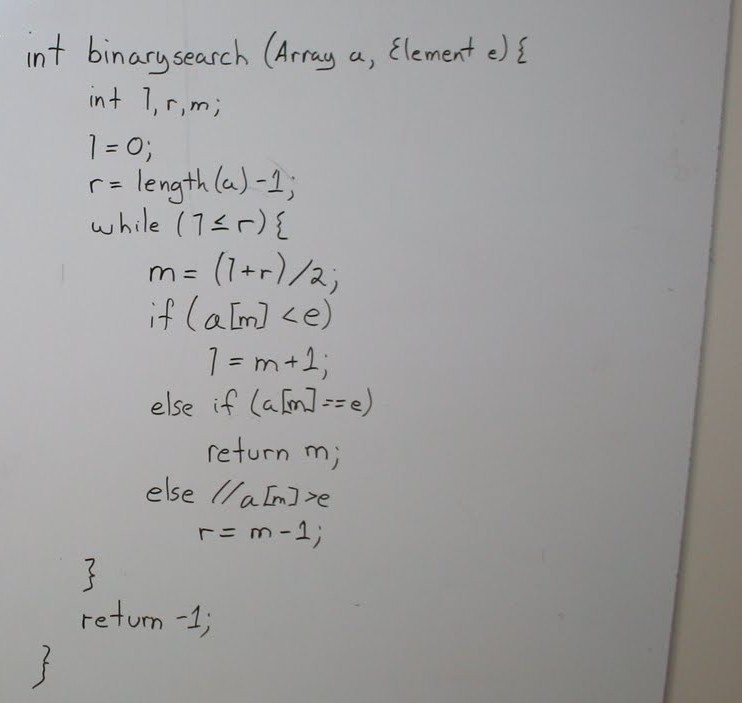 int binarysearch (Array a, Element e) {
int l, r, m;
l = 0;
r = length(a) -1;
while (l ≤ r) {
m = (l+r)/2;
if (a[m] < e)
l = m+1;
else if (a[m] == e)
return m;
else //a[m]>e
r = m-1;
}
return -1;
}